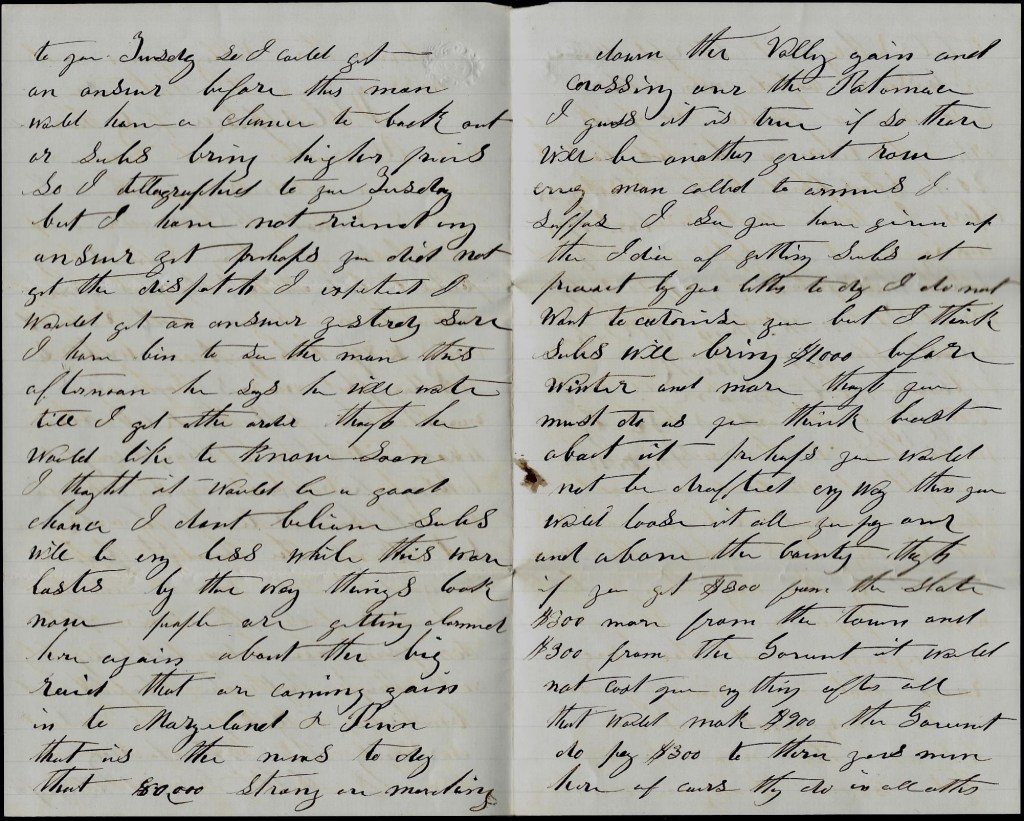 to you Tuesday so I could get
an answer before this man
would have a chance to back out
or subs bring higher prices
So I tellagraphed to you Tuesday
but I have not recieved any
answer yet perhaps you did not
get the dispatch I expected I
would get an answer yesterday sure
I have bin to see the man this
afternoon he sys he will wate
till I get the order though he
would like to know soon
I thought it would be a good
chance I dont believe subs
will be any less while this ware
lastes by the way things look
now people are getting alarmed
here again about the big
raid that are coming gain
in to Maryeland & Penn
that is the news to day
that 80,000 strong are marching
down the Vally gain and
crossing over the Patomace
I guess it is true if so there
will be another great row
every man called to armes I
suppose I see you have given up
the Idie of getting subs at
present by your letter to day I do not
want to you but I think
subs will bring $1000 before
winter and more though you
must do as you think best
about it perhaps you would
not be drafted any way then you
would loose it all you pay over
and above the bounty though
if you get $300 from the state
$300 more from the town and
$300 from the Goverment it would
not cost you any thing after all
that would mak $900 the Goverment
do pay $300 to three years men
here of cours they do in all other